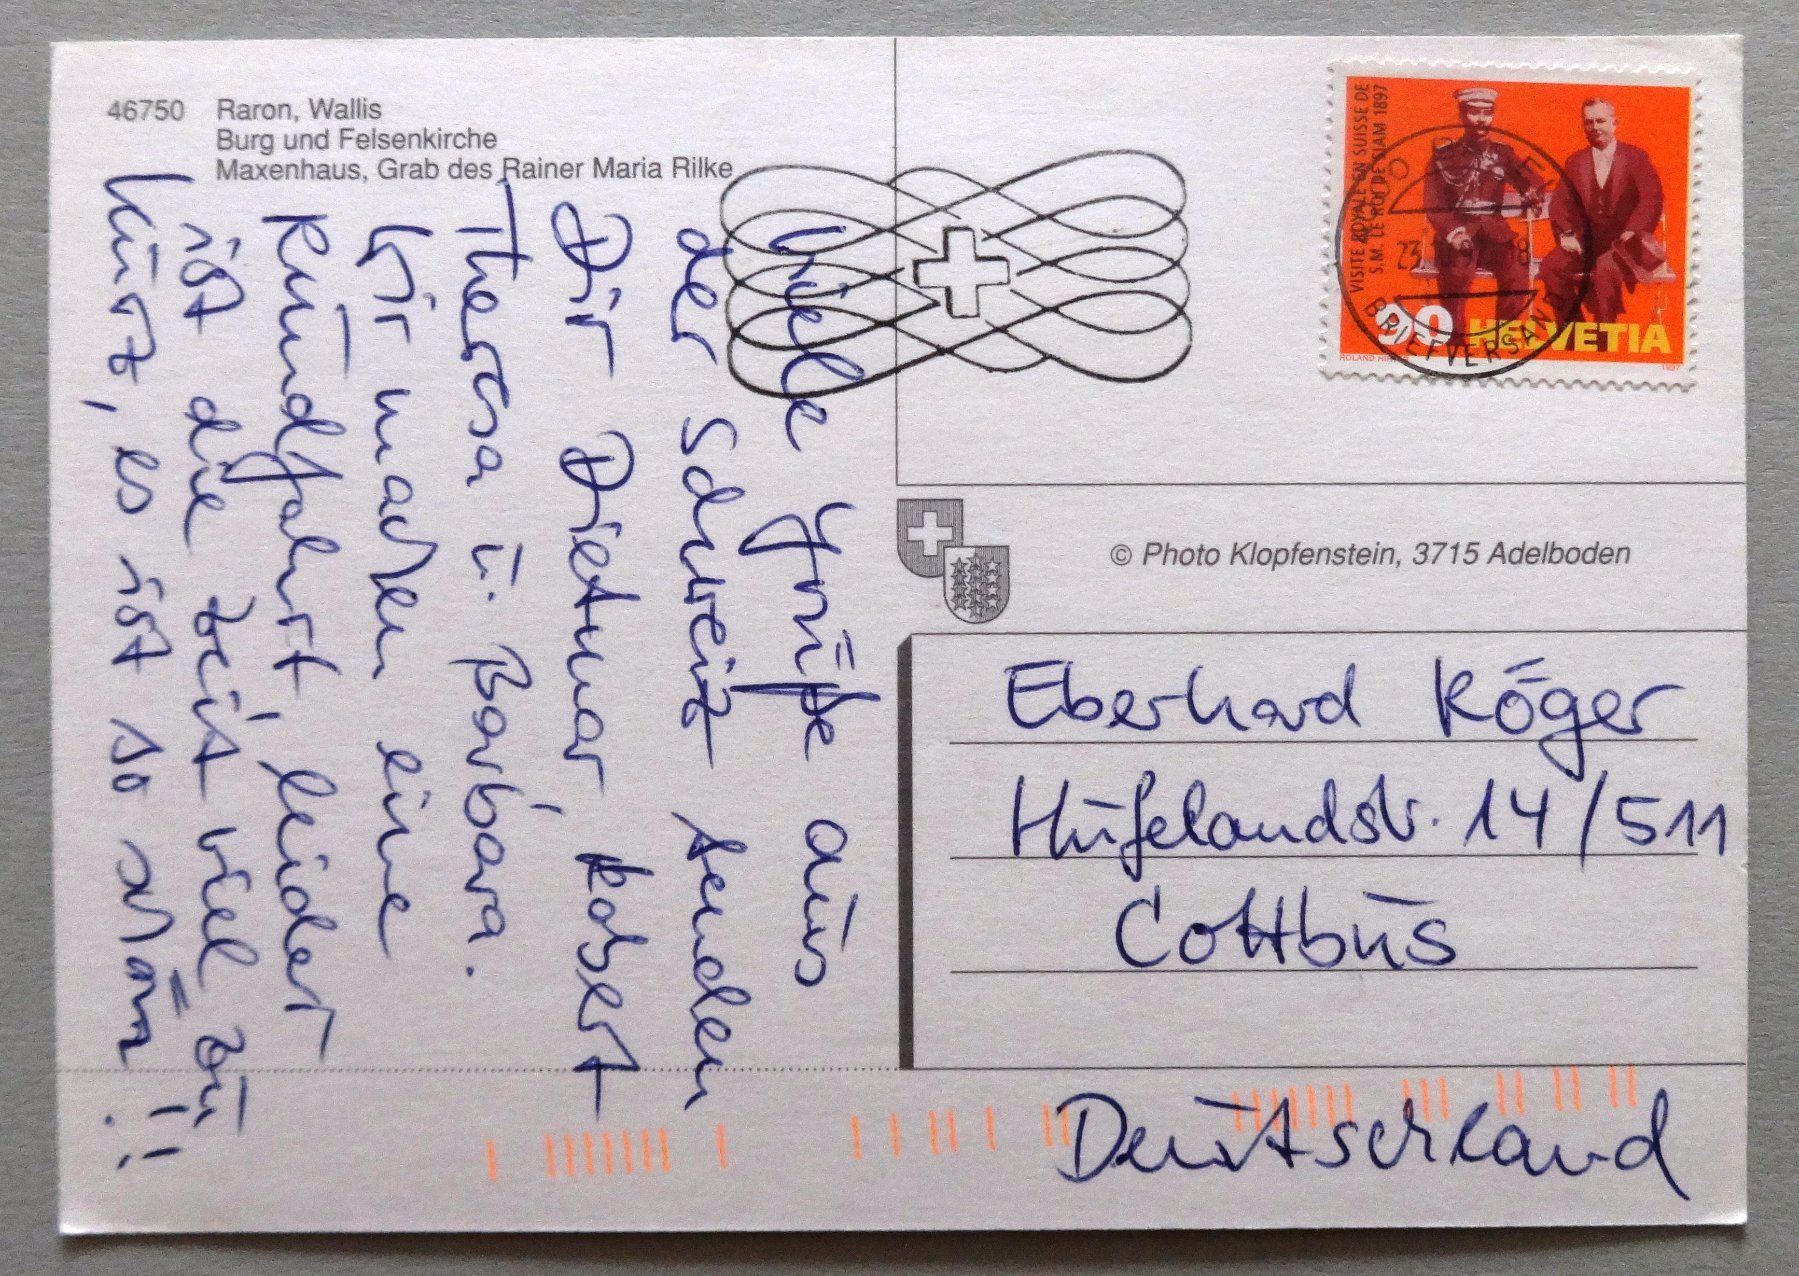 46750 Raron, Wallis
Burg und Felsenkirche
Maxenhaus, Grab des Rainer Maria Rilke
Viele Grüße aus
der Schweiz senden
Dir Dietmar, Robert
Theresa u. Barbara.
Wir machen eine
Rundfahrt, leider
ist die Zeit viel zu
kurz, es ist so schön!!
VISITE ROYALE EN SUISSE DE
S.M. LE ROI DE SIAM 1897
90 HELVETIA
BRIEFVERSAND
© Photo Klopfenstein, 3715 Adelboden
Eberhard Röger
Hufelandstr. 14/511
Cottbus
Deutschland